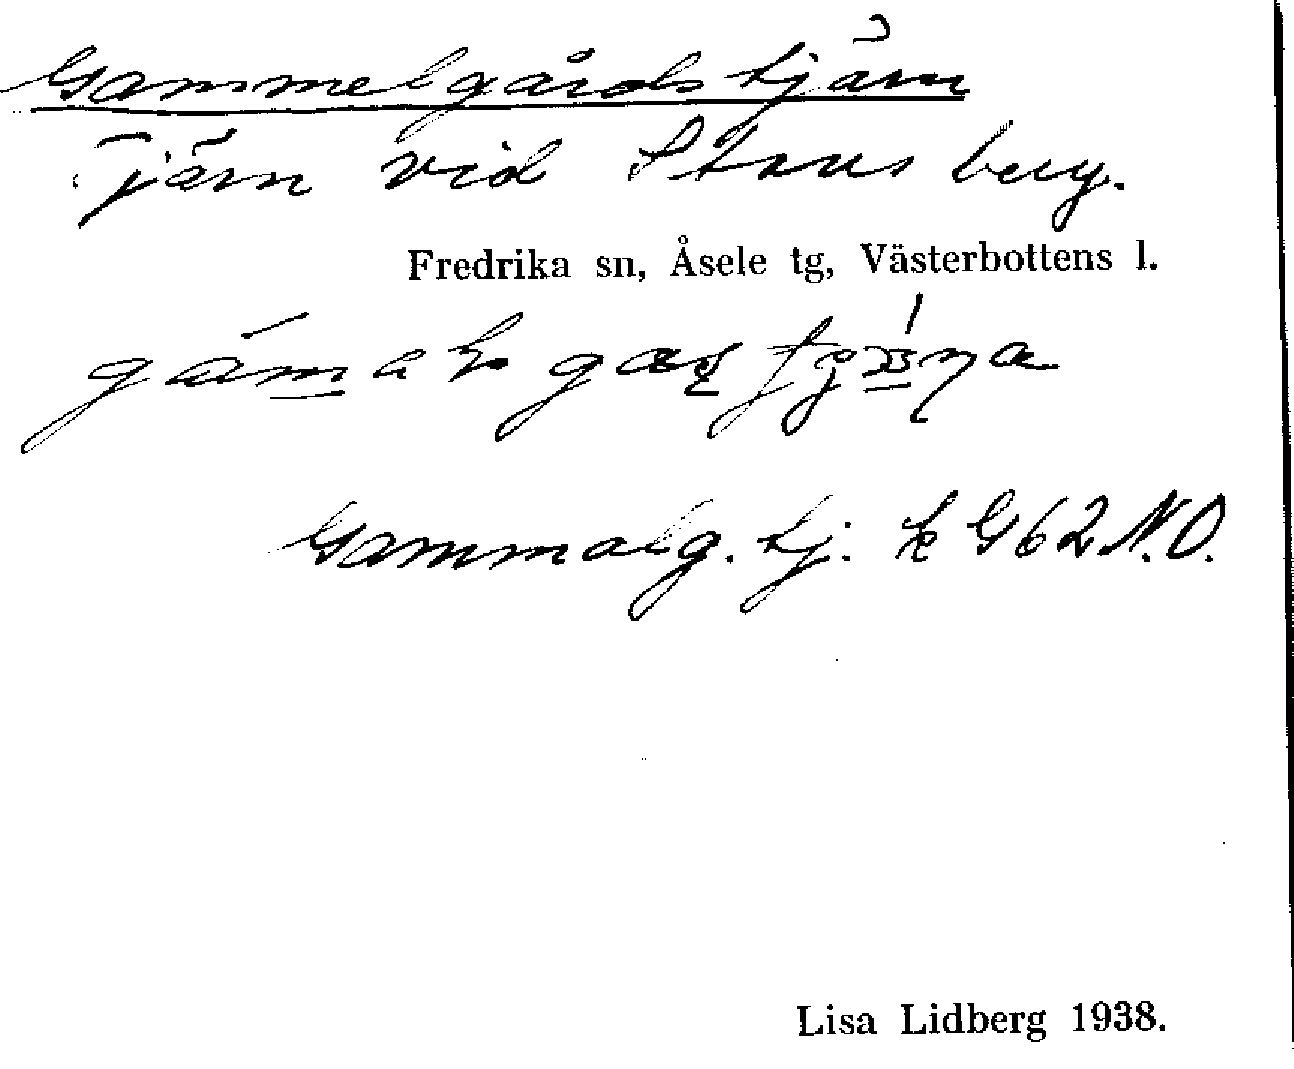 Gammelgårdstjärn
Tjärn vid Stensberg.
Fredrika sn, Åsele tg, Västerbottens l.
Gammalg. tj. k G 62 N.O.
Lisa Lidberg 1938.